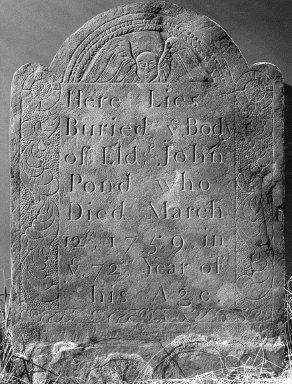 Here Lies
Buried yᵉ Body
of Eldʳ John
Pond who
Died March
12ᵗʰ 1759 in
yᵉ 72 Year of
his Age.